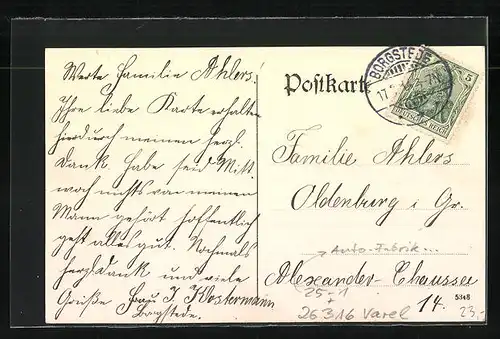 Werte Familie Ahlers!
Ihre liebe Karte erhalten
hierdurch meinen herzl.
Dank. Habe seid Mitt.
noch nichts von meinen
Mann gehört hoffentlich
geht alles gut. Nochmals
herzl. Dank und viele
Grüße Frau J. Klostermann
Borgstede.
Postkarte
BORGSTEDE
17.
5
DEUTSCHES REICH
Familie Ahlers
Oldenburg i Gr.
Auto-Fabrik...
Alexander-Chaussee
14.
25-1
26316 Varel
5348
23,-